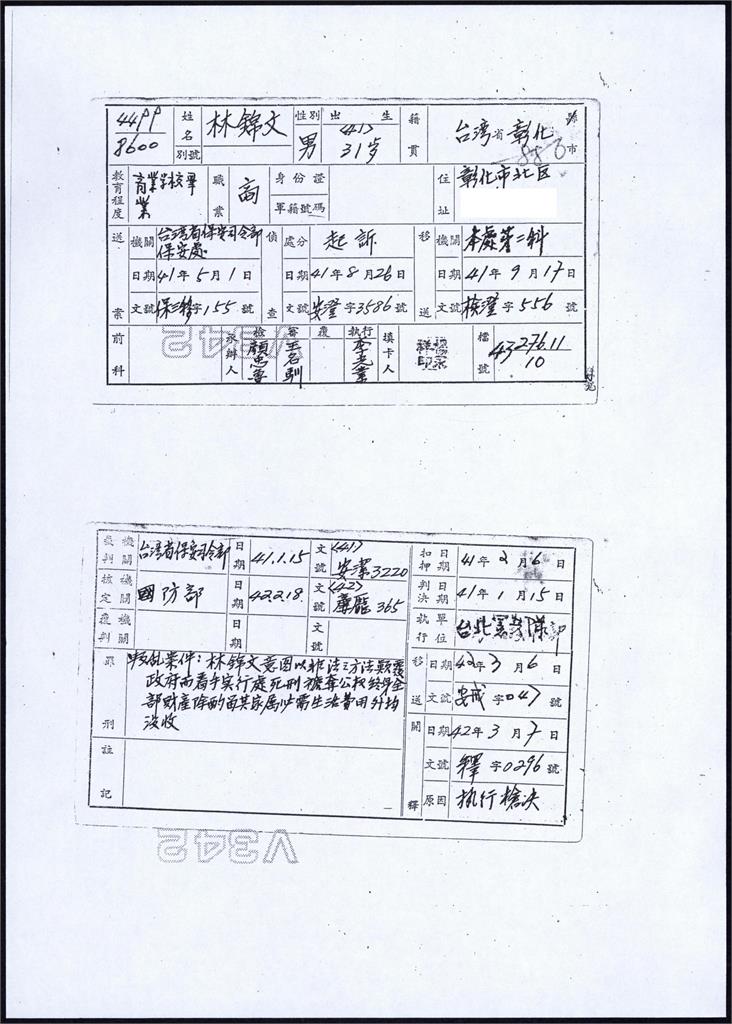 4499
8600
姓名 林錦文
別號
性別 男
出生 (41) 31岁
籍貫 台湾省彰化縣市
教育程度 商業学校畢業
職業 商
身份證
軍籍號碼
住址 彰化市北区
送案 機關 台湾省保安司令部保安處
日期 41年5月1日
文號 字155號
偵查 處分 起訴
日期 41年8月26日
文號 安澄字3586號
移送 機關 本處第二科
日期 41年9月17日
文號 檢澄字556號
前科
承辦人 檢 審 王名馴 覆 执行 李光業
填卡人
檔號 43 276.11
10
V342
裁判機關 台湾省保安司令部
日期 41.1.15
文號 (41)安潔3220
核定機關 國防部
日期 42.2.18.
文號 (42)廉龐365
覆判機關
日期
文號
罪刑 叛乱案件:林錦文意图以非法之方法顛覆
政府而着手实行處死刑褫奪公权終身全
部財產除酌留其家属必需生活費用外均
沒收
註記
扣押日期 41年2月6日
判決日期 41年1月15日
執行單位 台北憲兵隊部
移送 日期 42年3月6日
文號 安戒字047號
開釋 日期 42年3月7日
文號 釋字0296號
原因 执行槍决
V342